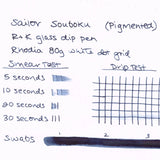 Sailor Souboku (Pigmented)
R+K glass dip pen
Rhodia 80g white dot grid
Smear Test
Drip Test
5 seconds
10 seconds
20 seconds
30 seconds
Swabs 1 2 3